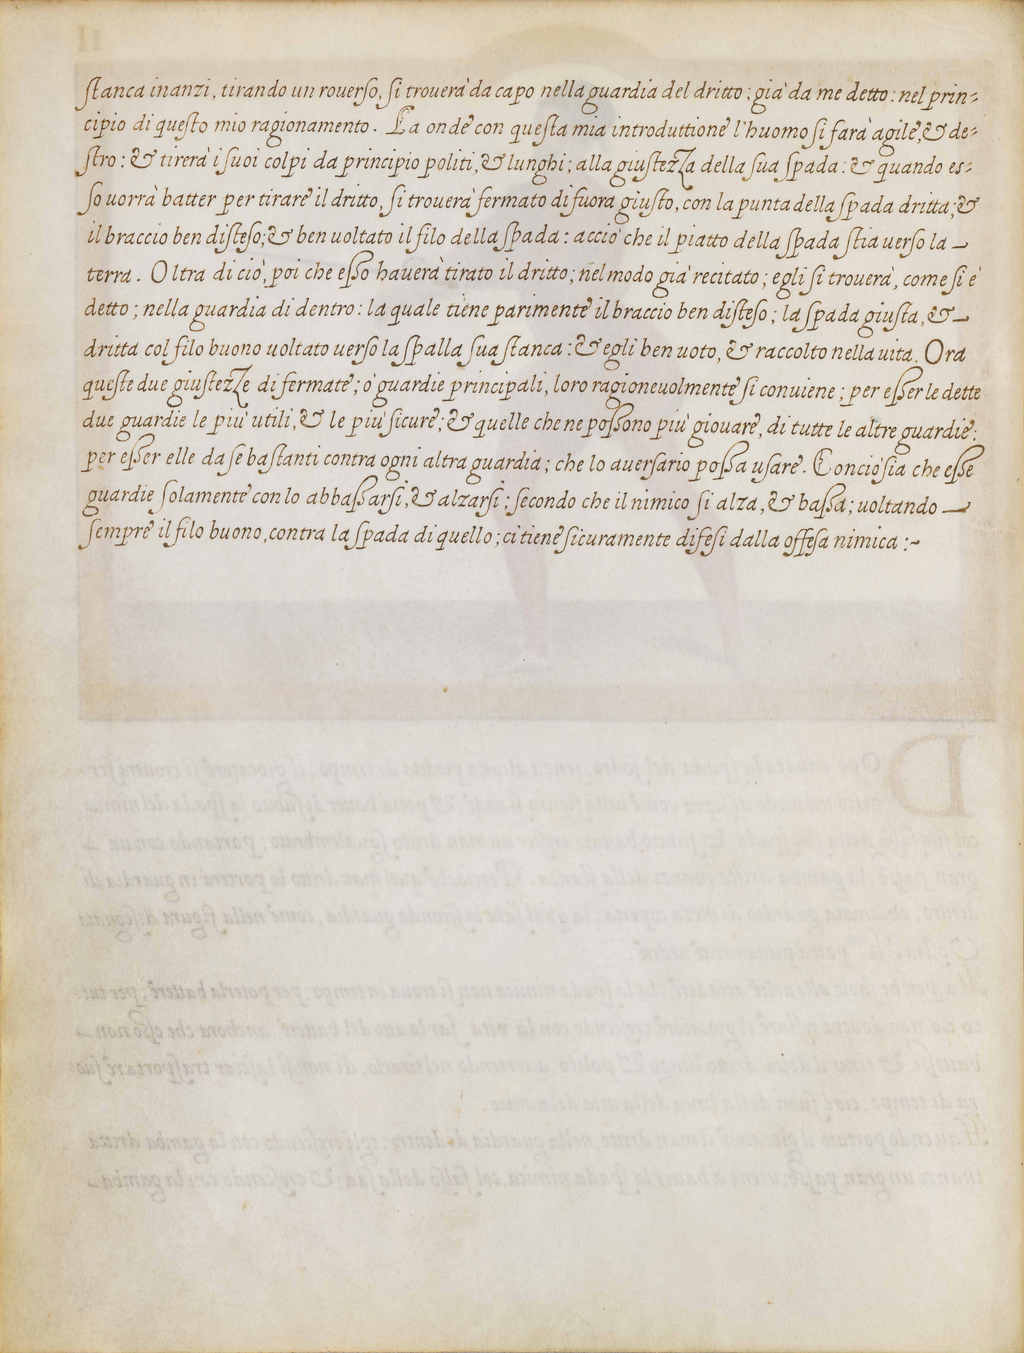 stanca inanzi, tirando un rouerso, si trouerà da capo nella guardia del dritto; già da me detto: nel prin-
cipio di questo mio ragionamento. La onde con questa mia introduttione l'huomo si farà agile, & de-
stro: & tirerà i suoi colpi da principio politi, & lunghi; alla giustezza della sua spada: & quando es-
so uorrà batter per tirare il dritto, si trouerà fermato di fuora giusto, con la punta della spada dritta; &
il braccio ben disteso; & ben uoltato il filo della spada: acciò che il piatto della spada stia uerso la
terra. Oltra di ciò, poi che esso hauerà tirato il dritto; nel modo già recitato; egli si trouerà, come si è
detto; nella guardia di dentro: la quale tiene parimente il braccio ben disteso; la spada giusta, &
dritta col filo buono uoltato uerso la spalla sua stanca: & egli ben uoto, & raccolto nella uita. Ora
queste due giustezze di fermate; ò guardie principali, loro ragioneuolmente si conuiene; per esser le dette
due guardie le più utili, & le più sicure; & quelle che ne possono più giouare, di tutte le altre guardie:
per esser elle da se bastanti contra ogni altra guardia; che lo auersario possa usare. Conciosia che esse
guardie solamente con lo abbassarsi, & alzarsi; secondo che il nimico si alza, & bassa; uoltando
sempre il filo buono, contra la spada di quello; ci tiene sicuramente difesi dalla offesa nimica :~